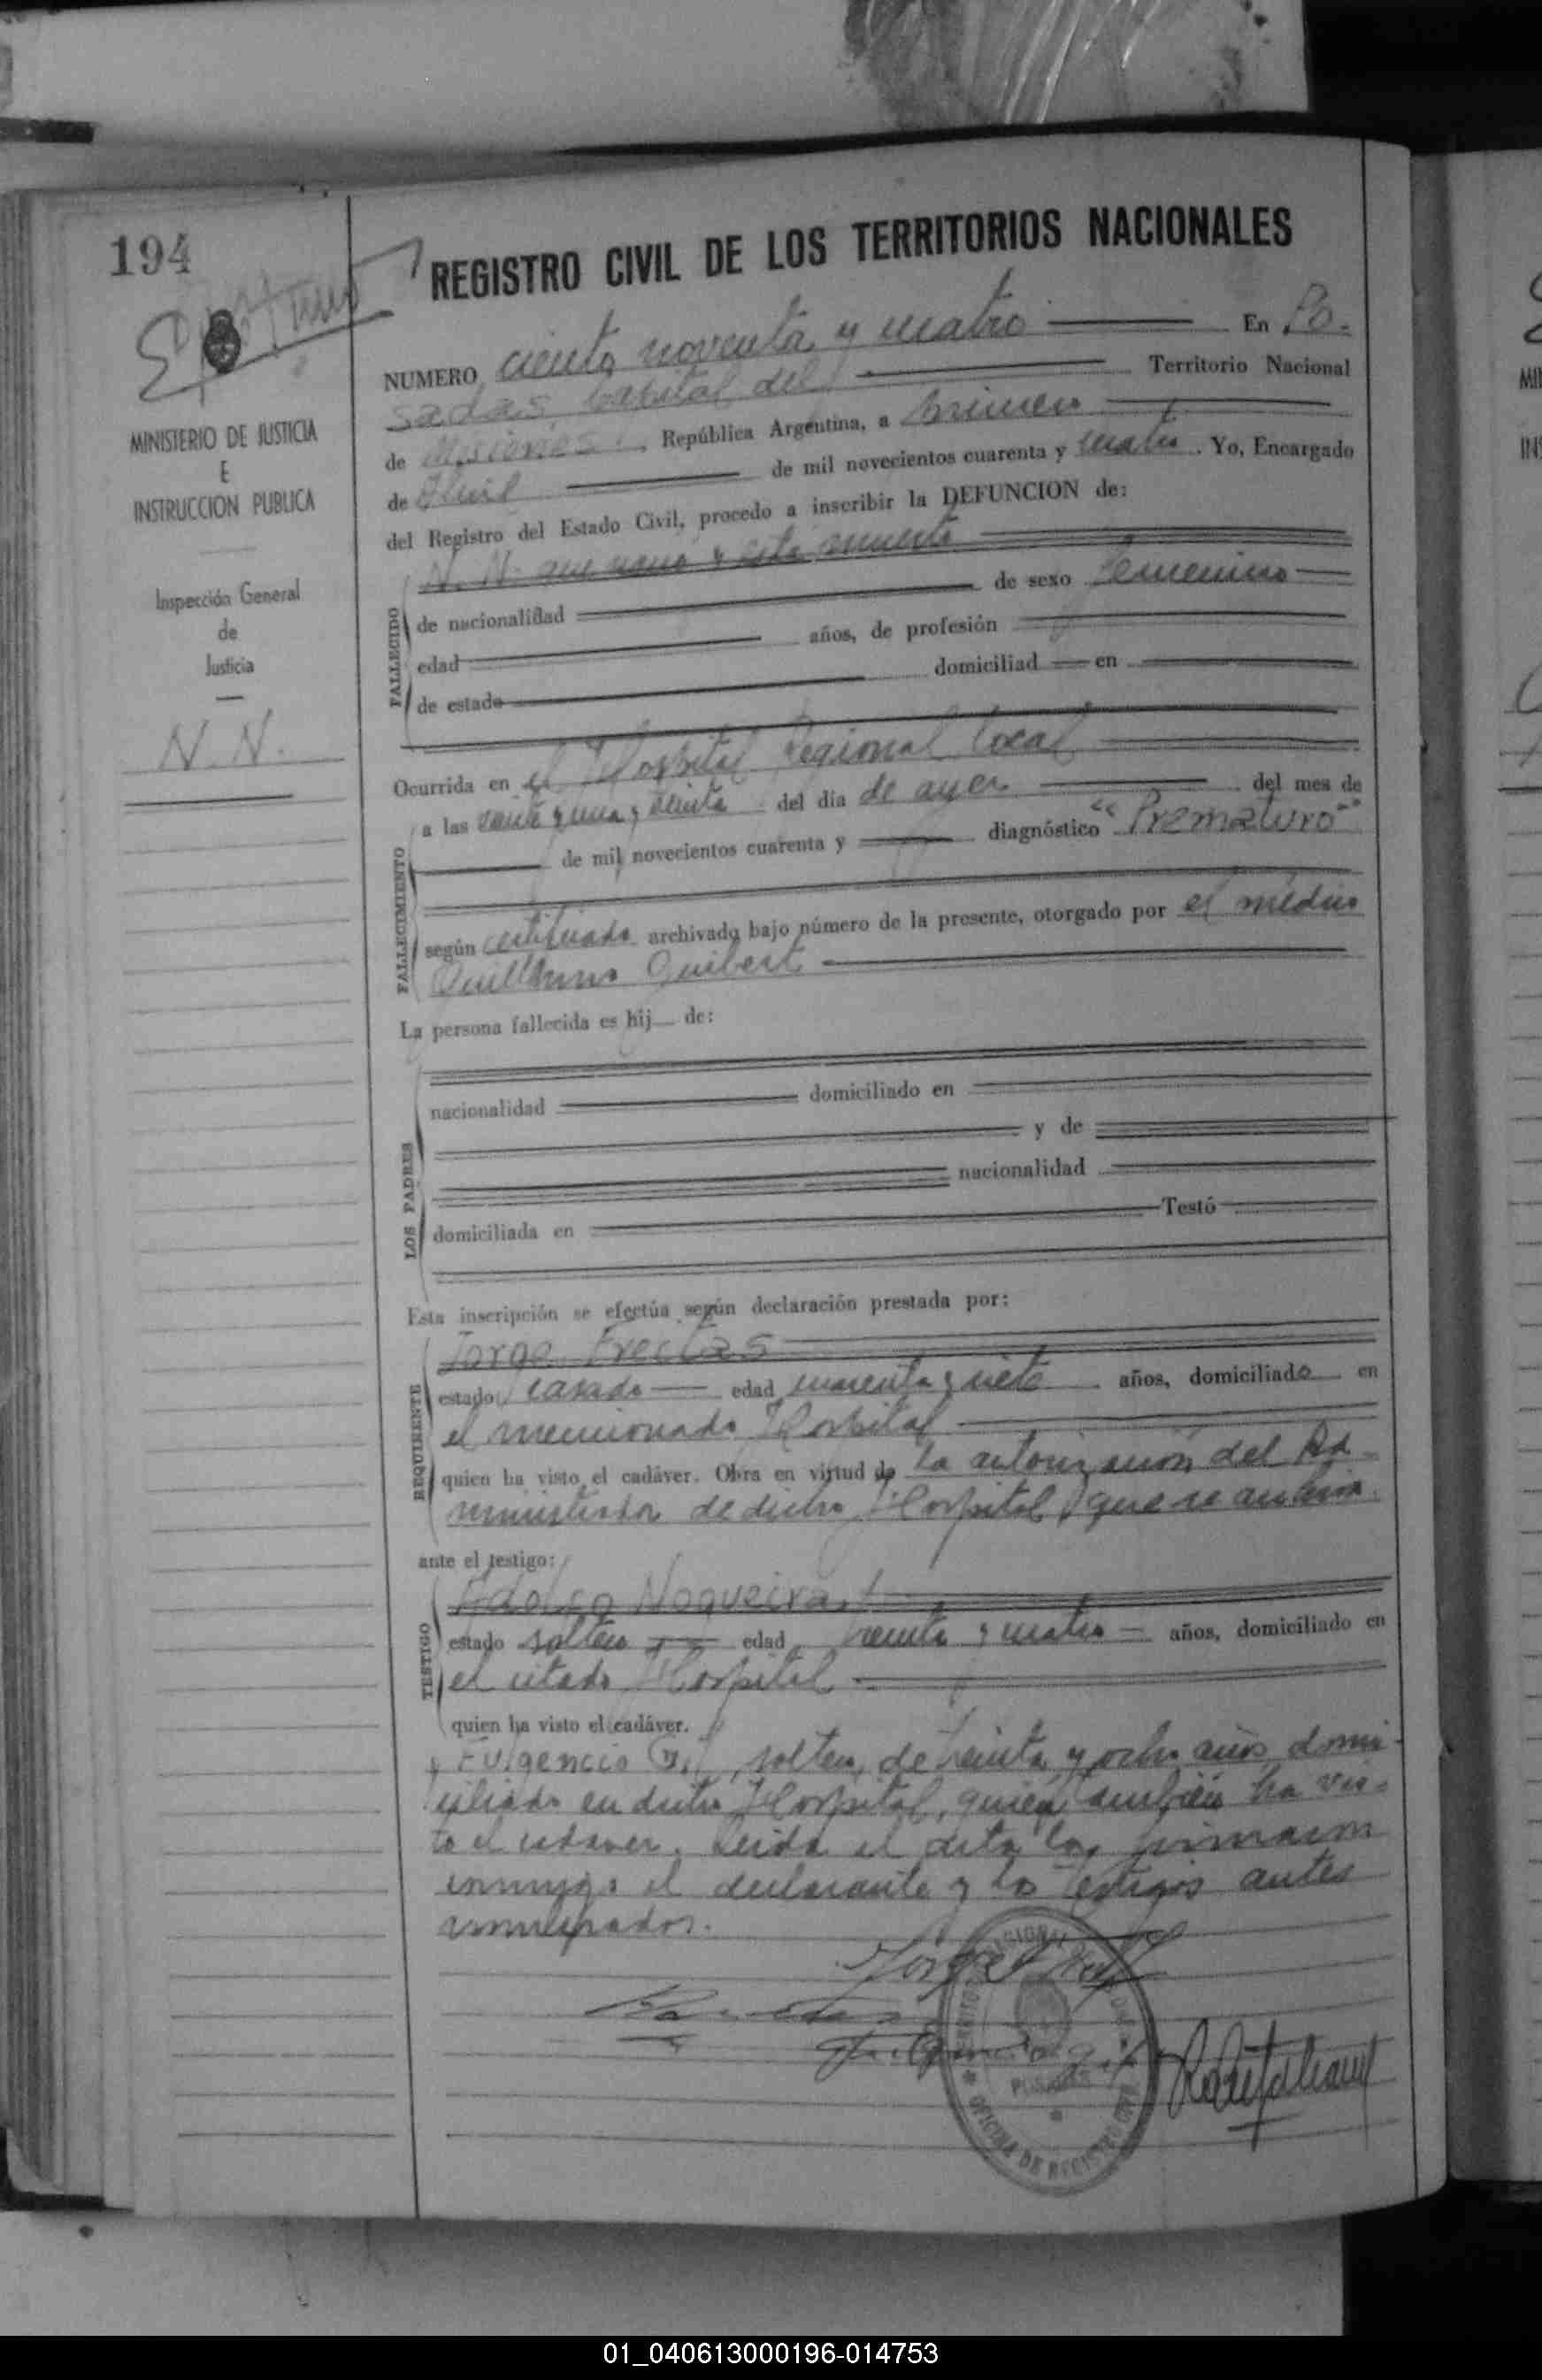 194
REGISTRO CIVIL DE LOS TERRITORIOS NACIONALES
NUMERO ciento noventa y cuatro En Po-
sadas capital del Territorio Nacional
de Misiones, República Argentina, a primero
de Abril de mil novecientos cuarenta y cuatro. Yo, Encargado
del Registro del Estado Civil, procedo a inscribir la DEFUNCION de:
MINISTERIO DE JUSTICIA
E
INSTRUCCION PUBLICA
Inspección General
de
Justicia
N. N.
FALLECIDO
N. N. que nació y esta muerta
de nacionalidad de sexo femenino
edad años, de profesión
de estado domiciliad en
Ocurrida en el Hospital Regional local
FALLECIMIENTO
a las veinte y una y treinta del día de ayer del mes de
de mil novecientos cuarenta y diagnóstico "Prematuro"
según certificado archivado bajo número de la presente, otorgado por el médico
Guillermo Guibert
La persona fallecida es hij de:
LOS PADRES
nacionalidad domiciliado en
y de
nacionalidad
domiciliada en Testó
Esta inscripción se efectúa según declaración prestada por:
REQUIRENTE
Jorge Freitas
estado casado edad cuarenta y siete años, domiciliado en
el mencionado Hospital
quien ha visto el cadáver. Obra en virtud de la autorización del Ad-
ministrador de dicho Hospital que se archiva.
ante el testigo:
TESTIGO
Adolfo Nogueira
estado soltero edad treinta y cuatro años, domiciliado en
el citado Hospital
quien ha visto el cadáver.
y Fulgencio Gil, soltero, de treinta y ocho años, domi-
ciliado en dicho Hospital, quien también ha vis-
to el cadaver. Leida el acta la firmaron
conmigo el declarante y los testigos antes
OFICINA DE REGISTRO CIVIL
POSADAS
01_040613000196-014753